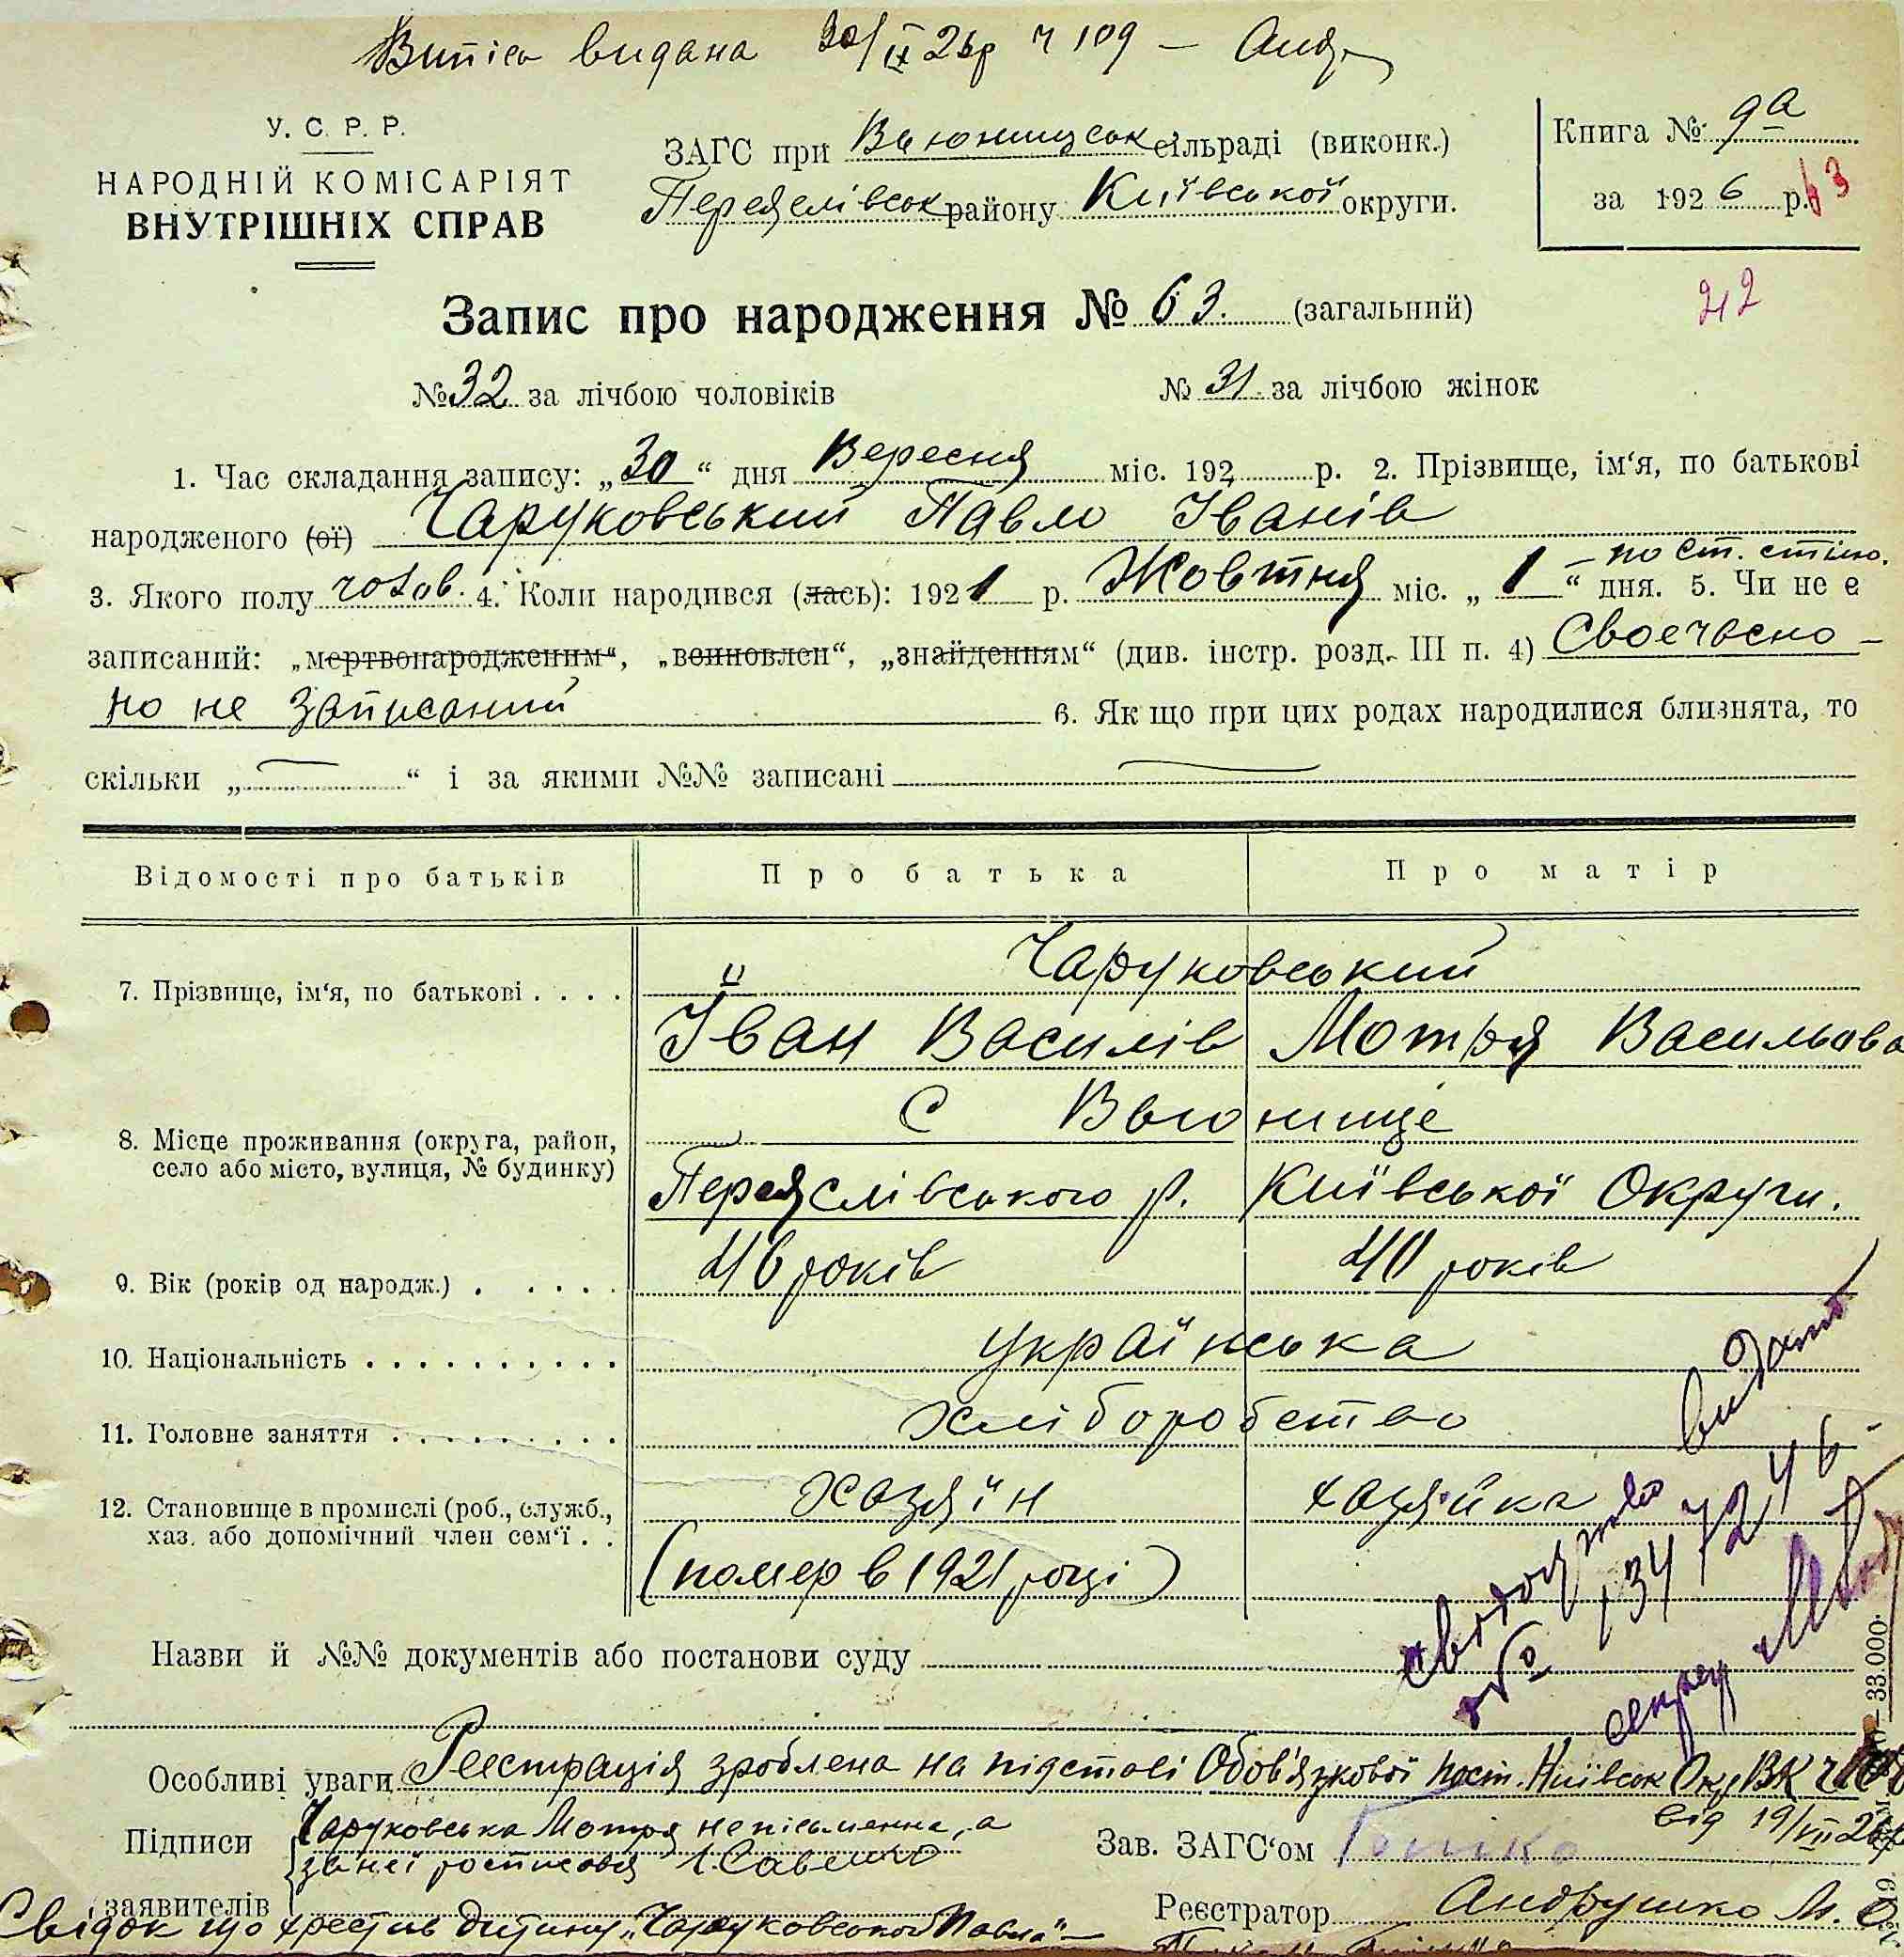 Виписа видана 30/IX 26р ч 109 —
У. С. Р. Р.
НАРОДНІЙ КОМІСАРІЯТ
ВНУТРІШНІХ СПРАВ
ЗАГС при Вьюнищськ сільраді (виконк.)
Переяслівськ району Київської округи.
Книга № 9а
за 1926 р.
63
42
Запис про народження № 63. (загальний)
№ 32 за лічбою чоловіків № 31. за лічбою жінок
1. Час складання запису: „30“ дня Вересня міс. 192 р. 2. Прізвище, ім‘я, по батькові
народженого (ої) Чаруковський Павло Іванів
— по ст. стилю.
3. Якого полу чолов. 4. Коли народився (лась): 1921 р. Жовтня міс. „1“ дня. 5. Чи не є
записаний: „мертвонародженим“, „вЂиновлен“, „знайденням“ (див. інстр. розд. III п. 4) Своєчасно —
но не записаний 6. Як що при цих родах народилися близнята, то
скільки „ “ і за якими №№ записані
Відомості про батьків Про батька Про матір
Чаруковський
7. Прізвище, ім‘я, по батькові . . . .
Іван Василів Мотря Васильова
С Вьюнище
8. Місце проживання (округа, район,
село або місто, вулиця, № будинку)
Переяслівського р. Київської Округи.
9. Вік (років од народж.) . . . . . 46 років 40 років
10. Національність . . . . . . . . . . українська
11. Головне заняття . . . . . . . . . хліборобство
12. Становище в промислі (роб., служб.,
хаз. або допомічний член сем‘ї . .
хазяїн хазяйка
(помер в 1921 році)
видано
134 72 46
секрет
Назви й №№ документів або постанови суду
33.000.
Особливі уваги Реєстрація зроблена на підставі Обов'язкової пост. Київськ Окр ВК ч
від 19/VII 26р
Підписи Чаруковська Мотря неписьменна, а
за неї росписався Савенко
заявителів
Зав. ЗАГС‘ом
Реєстратор Андрушко М.
Свідок що хрестив дитину „Чаруковської Павла“ —